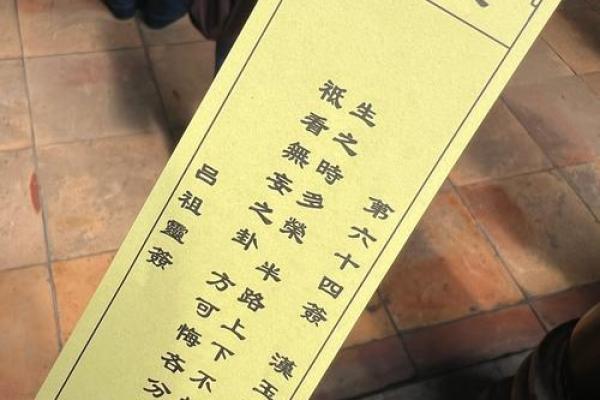 第六十四簽 漢五
生之時多榮 半路上下不
祗看無妄之卦 方可悔吝分
呂祖靈簽